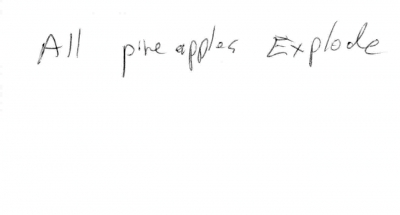 All pineapples Explode